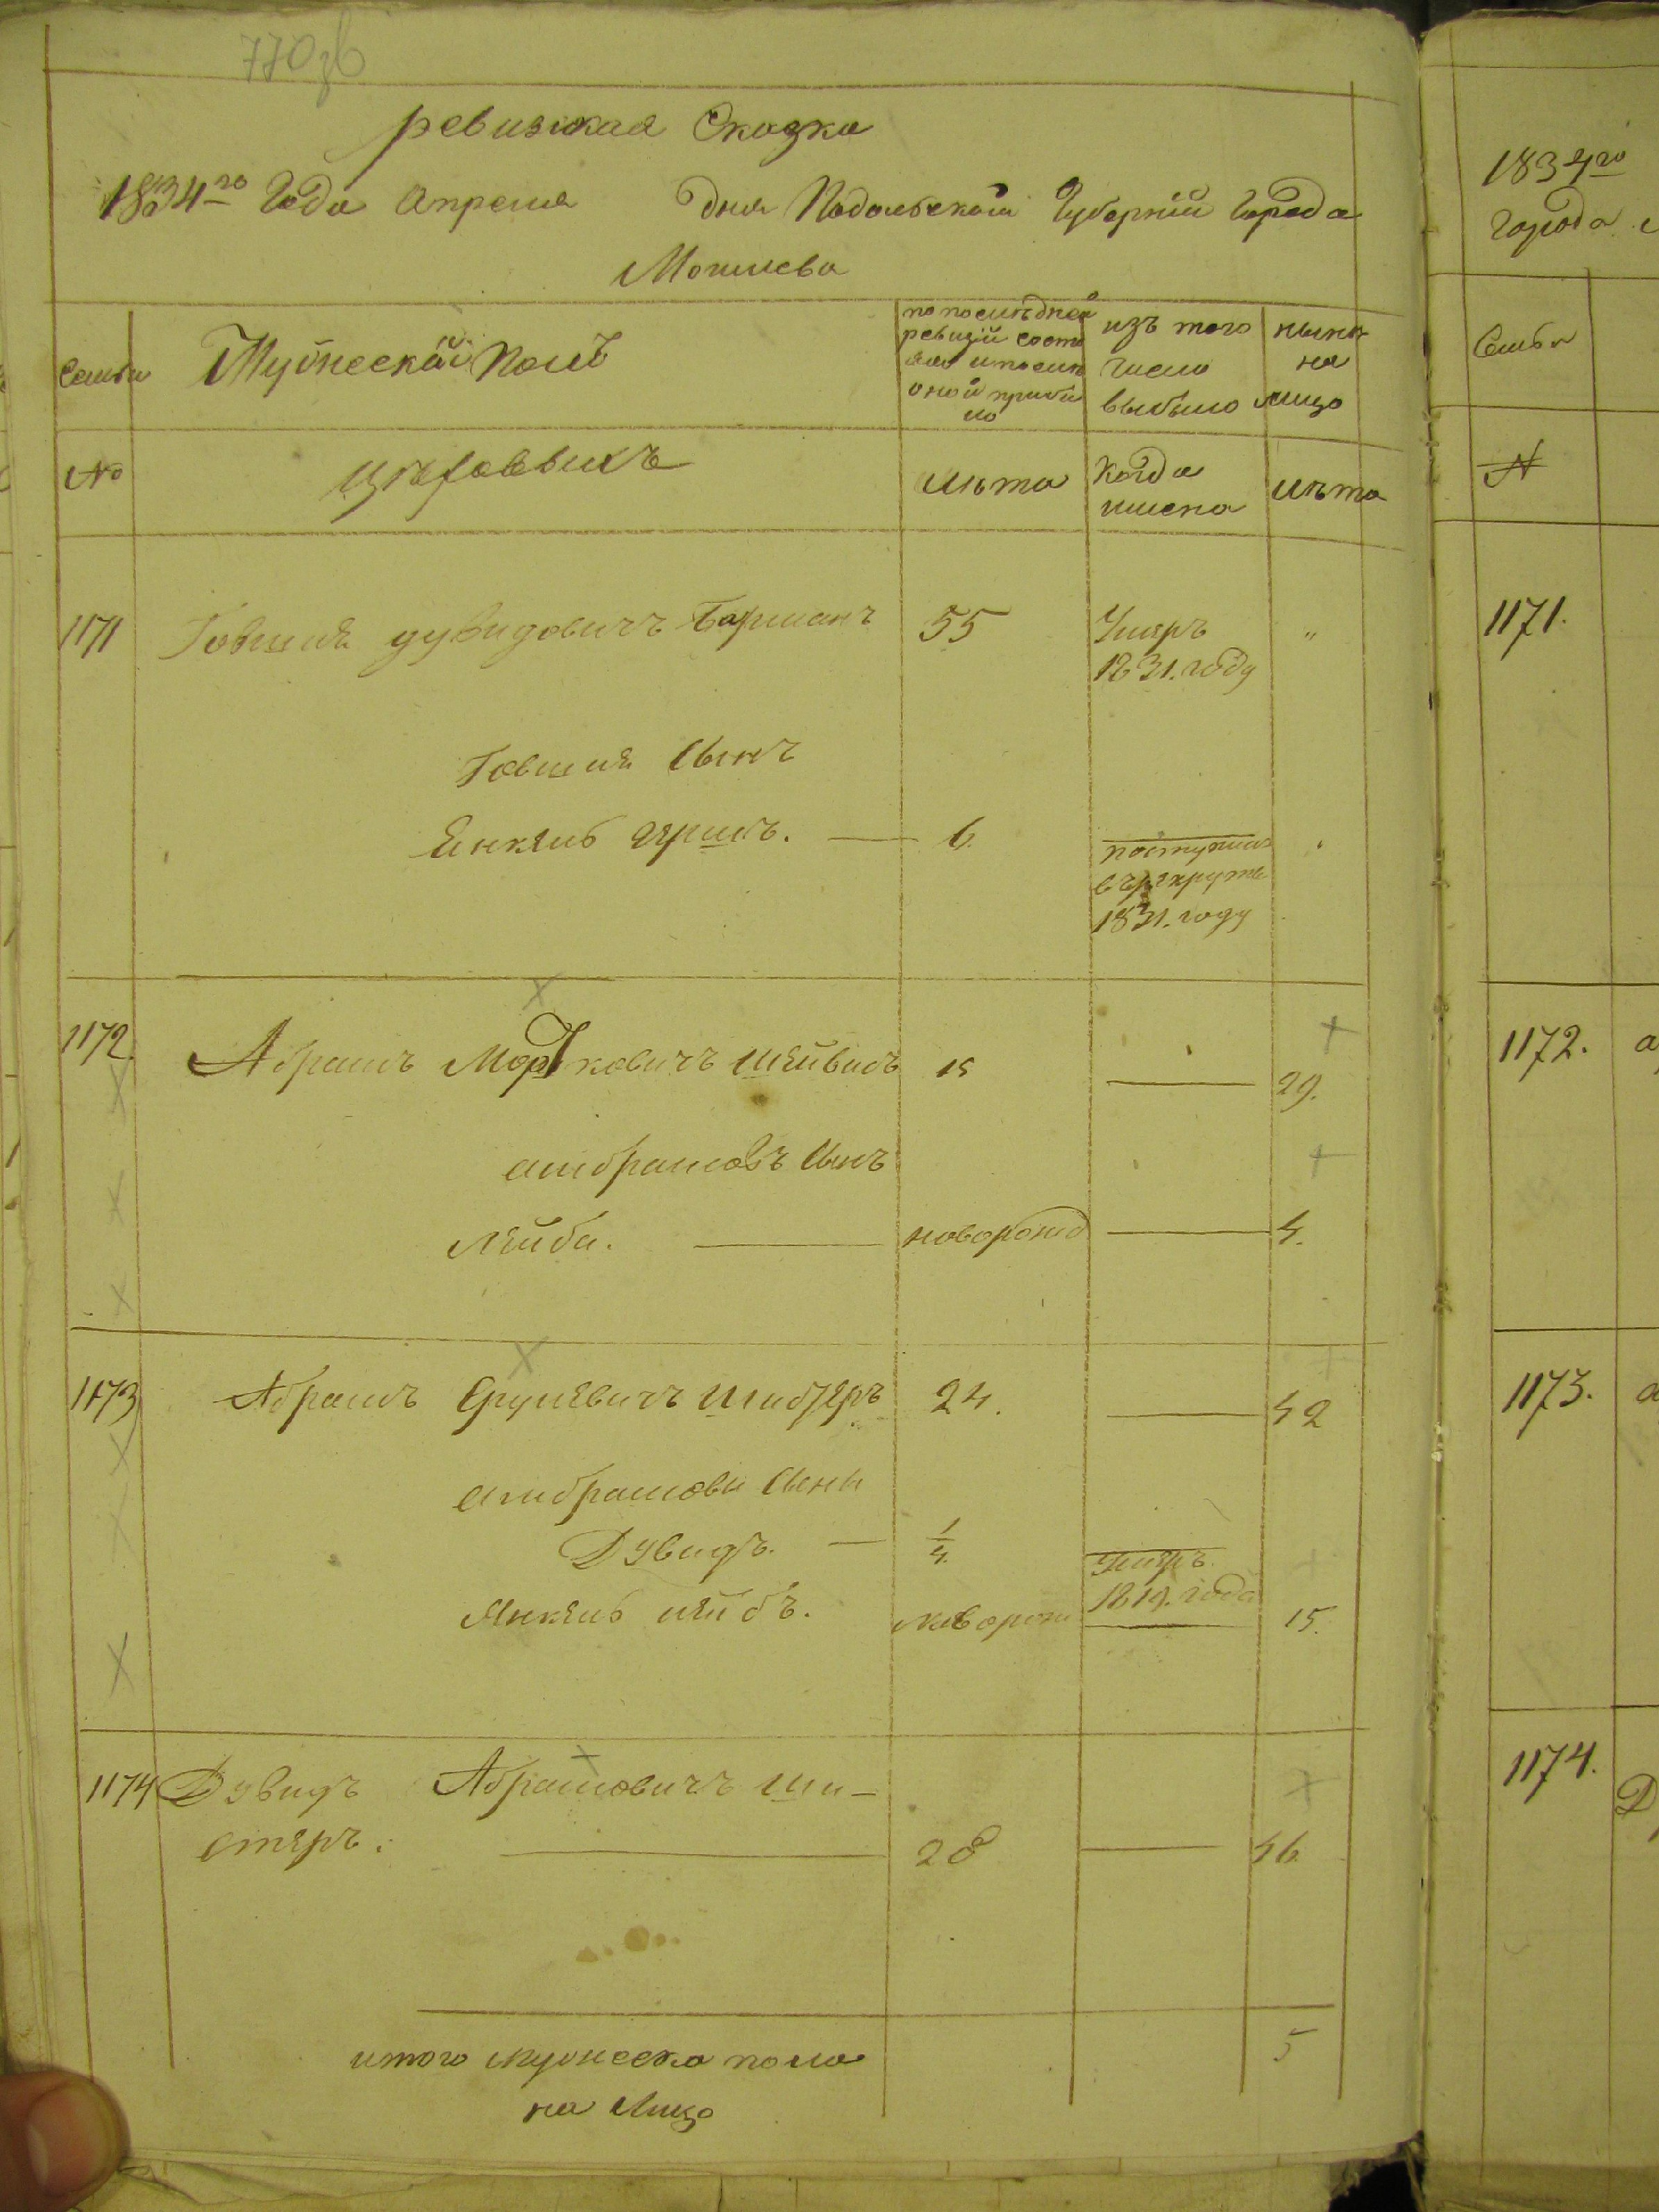 770 зв
ревизкая Сказка
1834го Года Апреля дня Подольской Губернии города
Могилева
Семьи
Мужеский полъ
по последней ревизии состояло и после оной прибыло
изъ того числа выбыло
ныне на лицо
№
Евреевъ
лета
когда имено
лета
1171 Іовшия Дувидовичъ Барманъ 55 Умеръ 1831. году "
Іовшия Сынъ
Янкель Гершъ. — 6. поступилъ в рекруты 1831. году "
1172. Абрамъ Моркковичъ Шейвихъ 15 — 29.
Абрамовъ Сынъ
Лейба. — новорожд — 4.
1173 Абрамъ Срулевичъ 24. — 42
Абрамовы Сыны
Дувидъ. — 1/4. Умеръ 1819. года
Янкель Лейбъ. новорож — 15.
1174 Дувидъ Абрамовичъ Ши-
стеръ. — 28 — 46
итого мужеска пола 5
на лицо
1834го
Города
Семьи
№
1171.
1172. а
1173. а
1174. Д